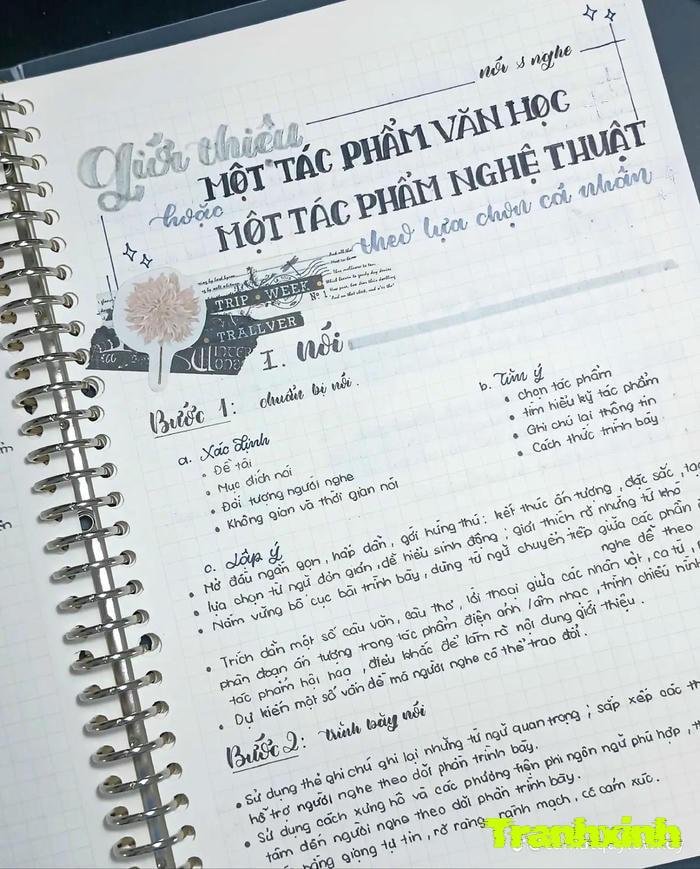 nói & nghe
Giới thiệu
MỘT TÁC PHẨM VĂN HỌC
hoặc
MỘT TÁC PHẨM NGHỆ THUẬT
theo lựa chọn cá nhân
TRIP • WEEK
No 1
• TRALLVER
I. Nói
Bước 1: chuẩn bị nói.
a. Xác định
• Đề tài
• Mục đích nói
• Đối tượng người nghe
• Không gian và thời gian nói
b. Tìm ý
• chọn tác phẩm
• tìm hiểu kỹ tác phẩm
• Ghi chú lại thông tin
• Cách thức trình bày
c. Lập ý
• Mở đầu ngắn gọn, hấp dẫn, gợi hứng thú: kết thúc ấn tượng, đặc sắc,
• lựa chọn từ ngữ đơn giản, dễ hiểu sinh động; giải thích rõ những từ khó
• Nắm vững bố cục bài trình bày, dùng từ ngữ chuyển tiếp giữa các phần
nghe dễ theo
• Trích dẫn một số câu văn, câu thơ, lời thoại giữa các nhân vật, ca từ,
phân đoạn ấn tượng trong tác phẩm điện ảnh / âm nhạc, trình chiếu hình
tác phẩm hội hoạ, điêu khắc để làm rõ nội dung giới thiệu.
• Dự kiến một số vấn đề mà người nghe có thể trao đổi.
Bước 2: trình bày nói
• Sử dụng thẻ ghi chú ghi lại những từ ngữ quan trọng; sắp xếp các
hỗ trợ người nghe theo dõi phần trình bày.
• Sử dụng cách xưng hô và các phương tiện phi ngôn ngữ phù hợp,
tâm đến người nghe theo dõi phần trình bày.
bằng giọng tự tin, rõ ràng, rành mạch, có cảm xúc.
Tranhxinh